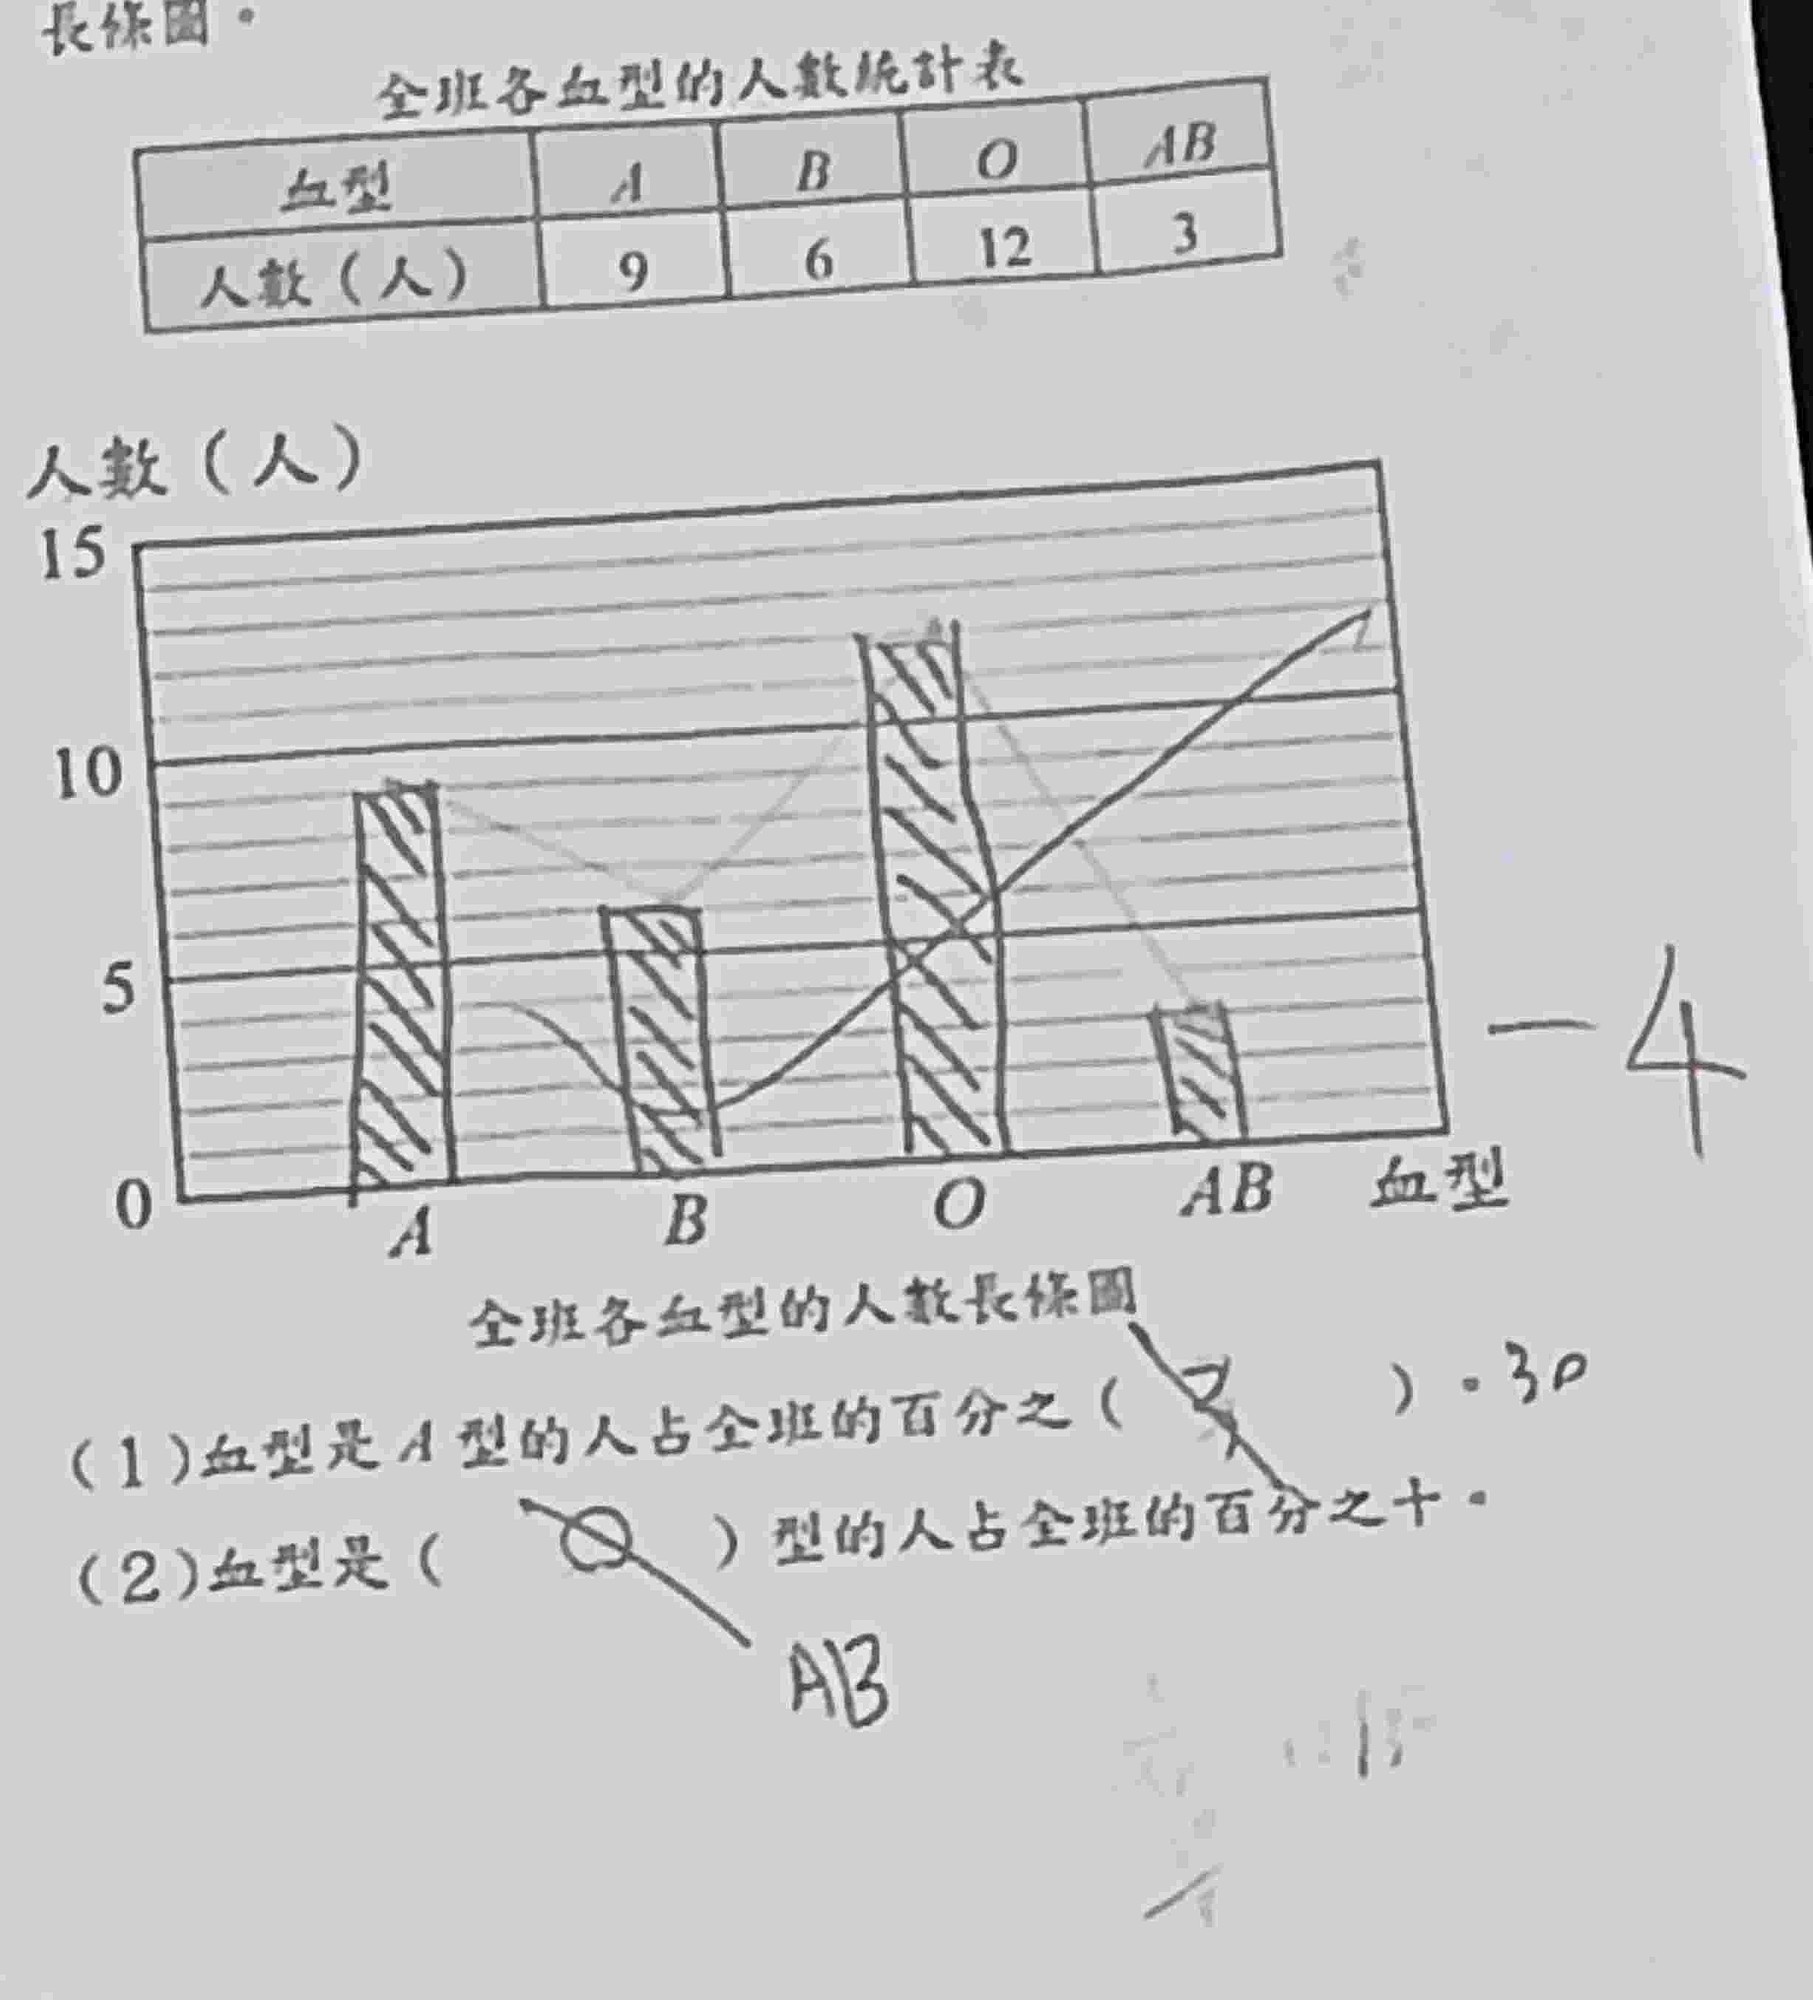 長條圖。
全班各血型的人數統計表
血型 A B O AB
人數（人） 9 6 12 3
人數（人）
15
10
5
－4
0
A B O AB 血型
全班各血型的人數長條圖
(1)血型是 A 型的人占全班的百分之（ ）。30
(2)血型是（ O ）型的人占全班的百分之十。
AB